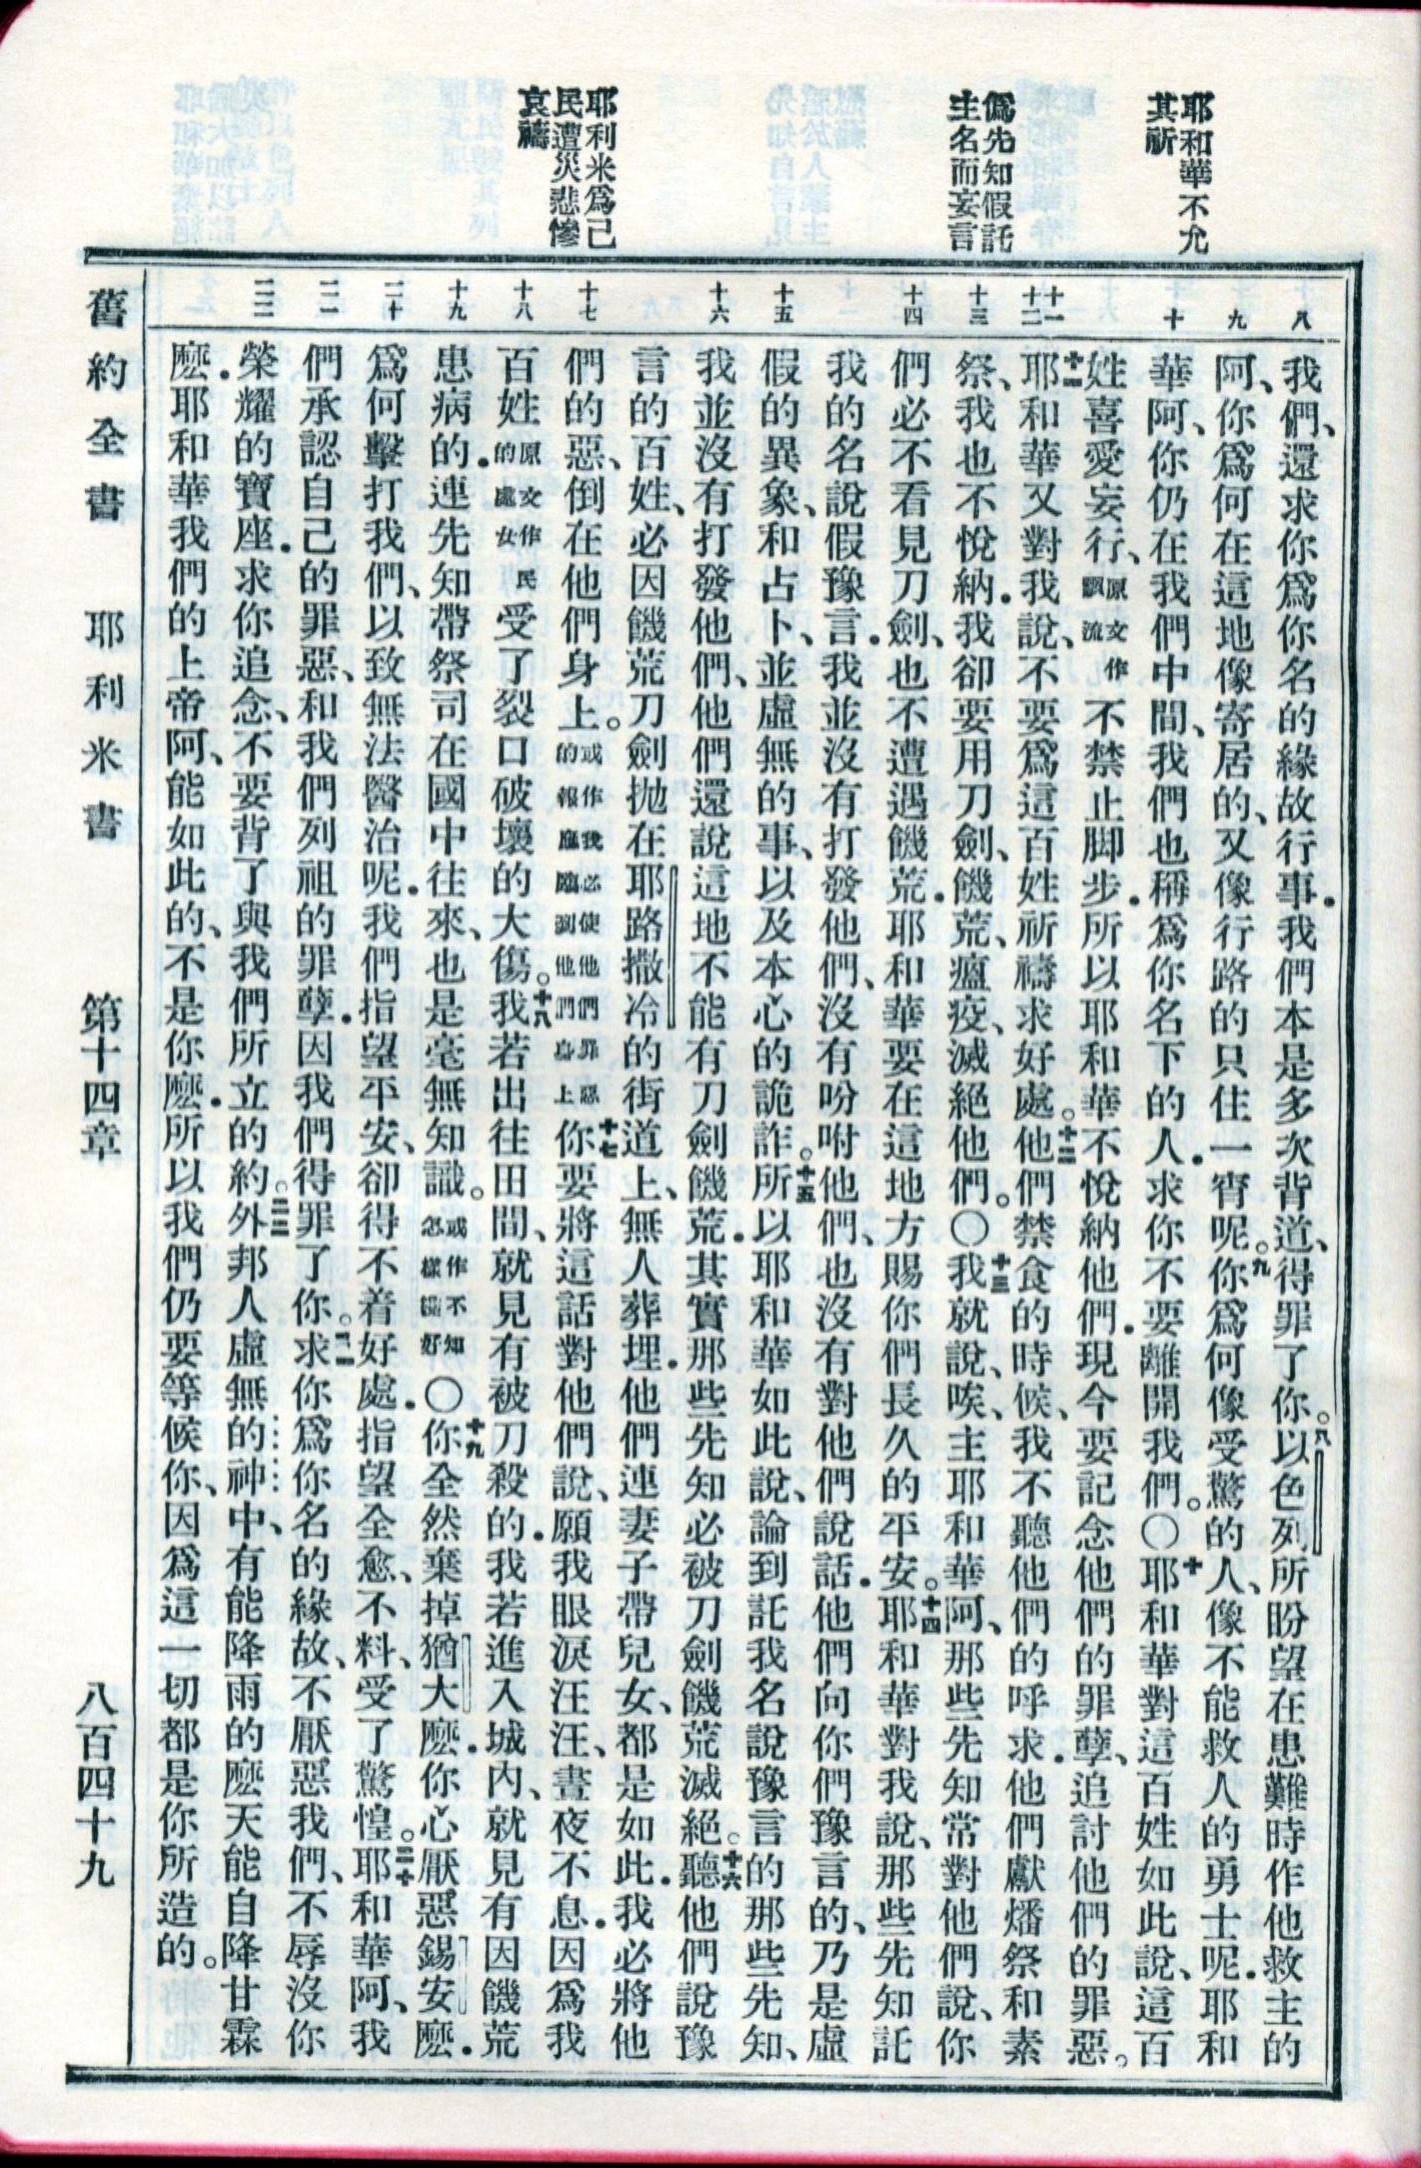 耶和華不允
其祈
僞先知假託
主名而妄言
耶利米爲己
民遭災悲慘
哀禱
八
九
十
十一
十二
十三
十四
十五
十六
十七
十八
十九
二十
二一
二二
我們、還求你爲你名的緣故行事．我們本是多次背道、得罪了你。八以色列所盼望在患難時作他救主的
阿、你爲何在這地像寄居的、又像行路的只住一宵呢。九你爲何像受驚的人、像不能救人的勇士呢．耶和
華阿、你仍在我們中間、我們也稱爲你名下的人．求你不要離開我們。〇十耶和華對這百姓如此說、這百
姓喜愛妄行、原文作飄流不禁止脚步．所以耶和華不悅納他們．現今要記念他們的罪孽、追討他們的罪惡。
十一耶和華又對我說、不要爲這百姓祈禱求好處。十二他們禁食的時候、我不聽他們的呼求．他們獻燔祭和素
祭、我也不悅納．我卻要用刀劍、饑荒、瘟疫、滅絕他們。〇十三我就說、唉、主耶和華阿、那些先知常對他們說、你
們必不看見刀劍、也不遭遇饑荒．耶和華要在這地方賜你們長久的平安。十四耶和華對我說、那些先知託
我的名說假豫言．我並沒有打發他們、沒有吩咐他們、也沒有對他們說話．他們向你們豫言的、乃是虛
假的異象、和占卜、並虛無的事、以及本心的詭詐。十五所以耶和華如此說、論到託我名說豫言的那些先知、
我並沒有打發他們、他們還說這地不能有刀劍饑荒．其實那些先知必被刀劍饑荒滅絕。十六聽他們說豫
言的百姓、必因饑荒刀劍抛在耶路撒冷的街道上、無人葬埋．他們連妻子帶兒女、都是如此．我必將他
們的惡、倒在他們身上。或作我必使他們罪惡的報應臨到他們身上十七你要將這話對他們說、願我眼淚汪汪、晝夜不息．因爲我
百姓原文作民的處女受了裂口破壞的大傷。十八我若出往田間、就見有被刀殺的．我若進入城內、就見有因饑荒
患病的．連先知帶祭司在國中往來、也是毫無知識。或作不知怎樣纔好〇十九你全然棄掉猶大麽．你心厭惡錫安麽．
爲何擊打我們、以致無法醫治呢．我們指望平安、卻得不着好處．指望全愈、不料、受了驚惶。二十耶和華阿、我
們承認自己的罪惡、和我們列祖的罪孽．因我們得罪了你。二一求你爲你名的緣故、不厭惡我們、不辱沒你
榮耀的寶座．求你追念、不要背了與我們所立的約。二二外邦人虛無的神中、有能降雨的麽天能自降甘霖
麽．耶和華我們的上帝阿、能如此的、不是你麽．所以我們仍要等候你、因爲這一切都是你所造的。
舊約全書　耶利米書　第十四章　八百四十九